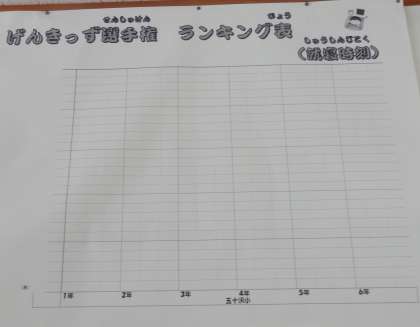 せんしゅけん ひょう
げんきっず選手権 ランキング表
しゅうしんじこく
(就寝時刻)
1年 2年 3年 4年 5年 6年
五十沢小